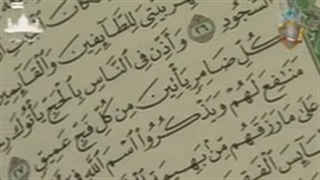 وَالْقَائِمِينَ
بَيْتِيَ لِلطَّائِفِينَ
السُّجُودِ ٢٦ وَأَذِّن فِي النَّاسِ بِالْحَجِّ يَأْتُوكَ
كُلِّ ضَامِرٍ يَأْتِينَ مِن كُلِّ فَجٍّ عَمِيقٍ ٢٧
مَنَافِعَ لَهُمْ وَيَذْكُرُوا اسْمَ اللَّهِ
عَلَىٰ مَا رَزَقَهُم مِّن بَهِيمَةِ